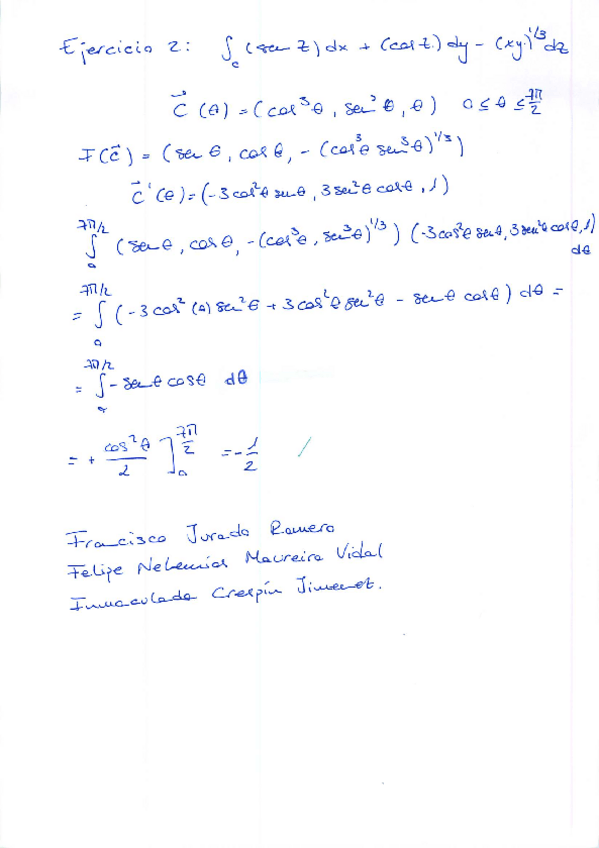 Ejercicio 2: ∫_c (sen z) dx + (cos z) dy - (xy)^1/3 dz
c⃗ (θ) = (cos³θ, sen³θ, θ) 0 ≤ θ ≤ 7π/2
F(c⃗) = (sen θ, cos θ, - (cos³θ sen³θ)^1/3)
c⃗'(θ) = (-3cos²θ senθ, 3sen²θ cosθ, 1)
∫_0^7π/2 (senθ, cosθ, -(cos³θ, sen³θ)^1/3) (-3cos²θ senθ, 3sen²θ cosθ, 1) dθ
= ∫_0^7π/2 (-3cos²(θ) sen²θ + 3cos²θ sen²θ - senθ cosθ) dθ =
= ∫_0^7π/2 - senθ cosθ dθ
= + cos²θ/2 ]_0^7π/2 = - 1/2
Francisco Jurado Romero
Felipe Nehemias Maureira Vidal
Inmaculada Crespín Jimenet.